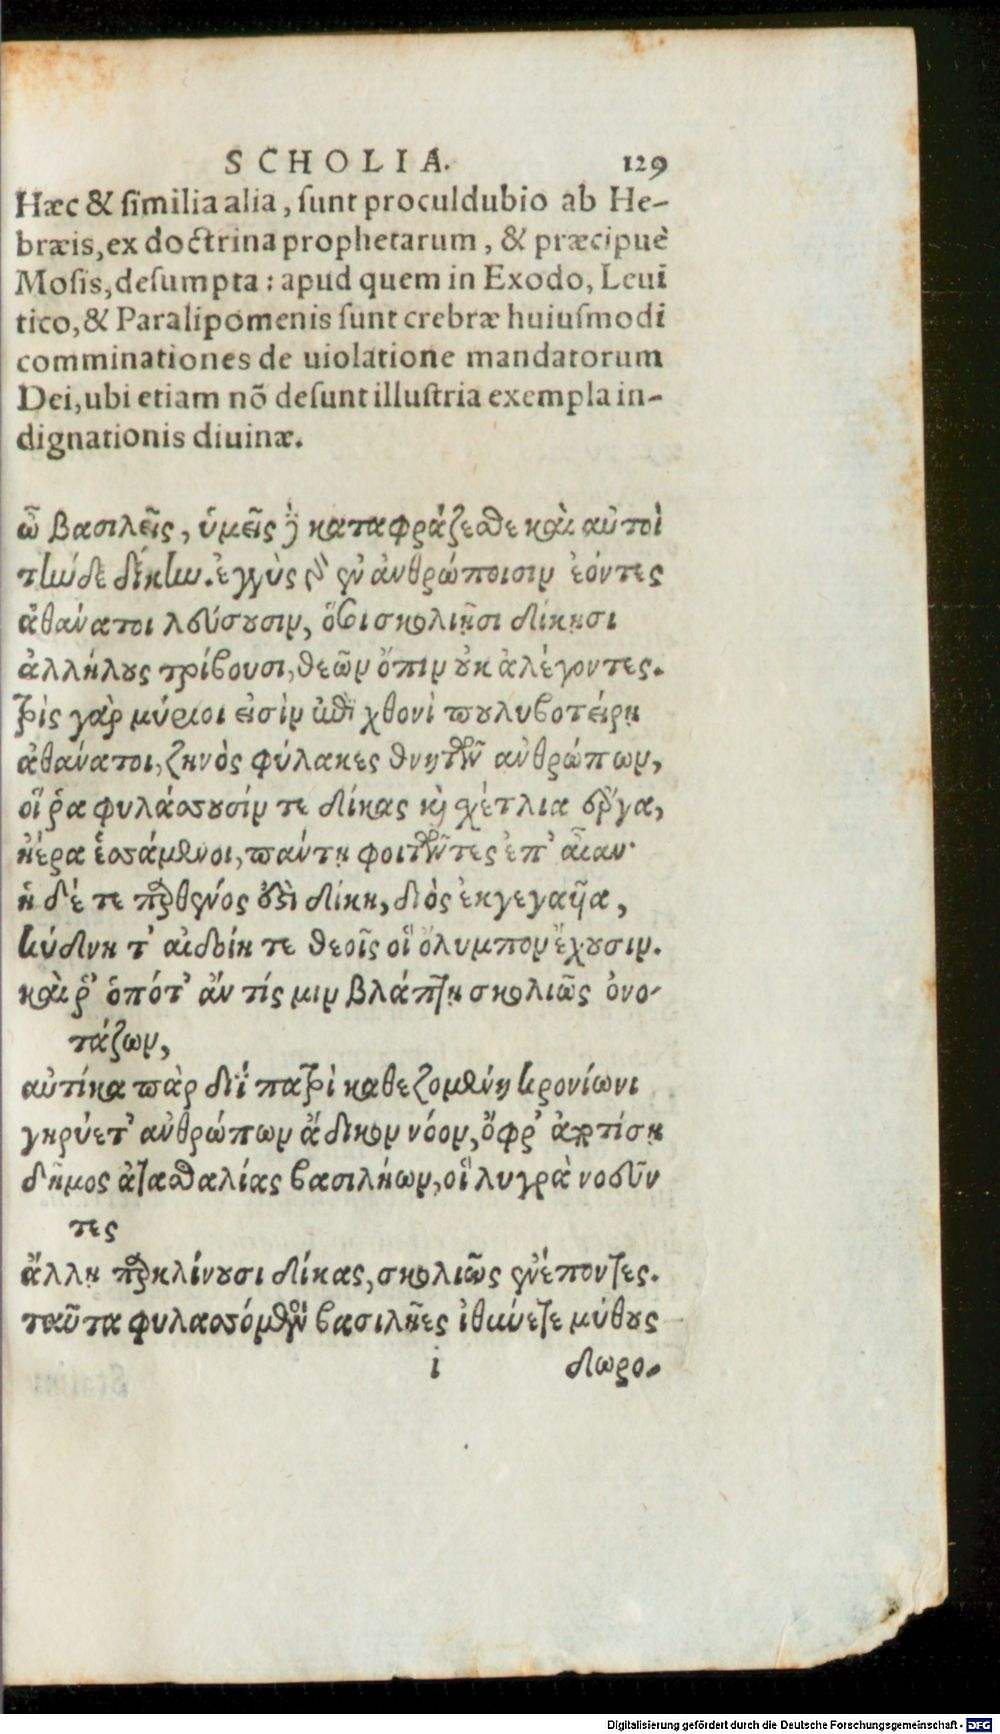 SCHOLIA. 129
Hæc & ſimilia alia, ſunt proculdubio ab He-
bræis, ex doctrina prophetarum, & præcipuè
Moſis, deſumpta: apud quem in Exodo, Leui
tico, & Paralipomenis ſunt crebræ huiuſmodi
comminationes de uiolatione mandatorum
Dei, ubi etiam nõ deſunt illuſtria exempla in-
dignationis diuinæ.
ὦ βασιλεῖς, ὑμεῖς ἢ καταφράζεσθε καὶ αὐτοὶ
τήνδε δίκην. ἐγγὺς γὰρ ἐν ἀνθρώποισιν ἐόντες
ἀθάνατοι λεύσουσιν, ὅσοι σκολιῇσι δίκῃσι
ἀλλήλους τρίβουσι, θεῶν ὄπιν οὐκ ἀλέγοντες.
τρὶς γὰρ μύριοι εἰσὶν ἐπὶ χθονὶ πουλυβοτείρῃ
ἀθάνατοι, ζηνὸς φύλακες θνητῶν ἀνθρώπων,
οἵ ῥα φυλάσσουσίν τε δίκας καὶ σχέτλια ἔργα,
ἠέρα ἑσσάμενοι, πάντη φοιτῶντες ἐπ' αἶαν·
ἡ δέ τε παρθένος ἐστὶ δίκη, διὸς ἐκγεγαυῖα,
κύδνη τ' αἰδοίη τε θεοῖς οἳ ὄλυμπον ἔχουσιν.
καὶ ῥ' ὁπότ' ἄν τίς μιν βλάπτῃ σκολιῶς ὀνο-
τάζων,
αὐτίκα πὰρ διῒ πατρὶ καθεζομένη κρονίωνι
γηρύετ' ἀνθρώπων ἄδικον νόον, ὄφρ' ἀποτίσῃ
δῆμος ἀτασθαλίας βασιλήων, οἳ λυγρὰ νοεῦν
τες
ἄλλῃ παρκλίνουσι δίκας, σκολιῶς ἐνέποντες.
ταῦτα φυλασσόμενοι βασιλῆες ἰθύνετε μύθους
i δωρο-
Digitalisierung gefördert durch die Deutsche Forschungsgemeinschaft - DFG